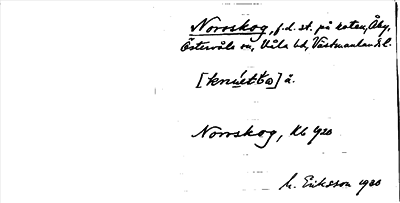 Norrskog, f.d. st. på roten, Åby,
Östervåla sn, Våla hd, Västmanlands l.
å.
Norrskog, Kb 1920
M. Eriksson 1920